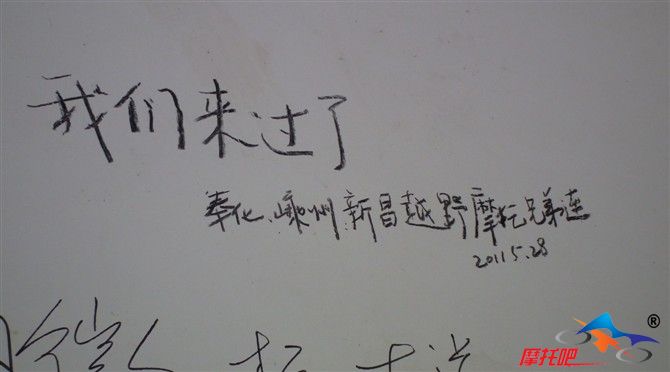 我们来过了
奉化、嵊州、新昌越野摩托兄弟连
2011.5.28
摩托吧®